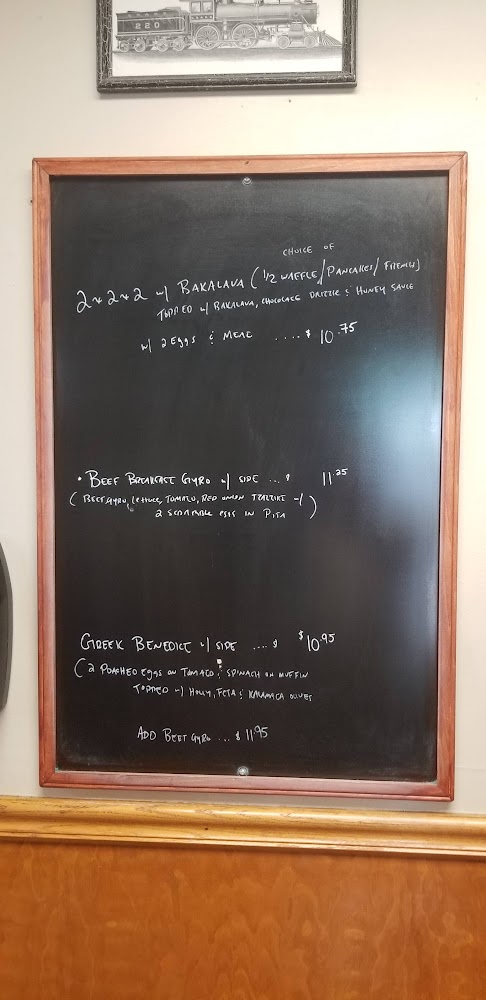 220
CHOICE OF
2x2x2 w/ BAKALAVA (1/2 WAFFLE/PANCAKES/FRENCH)
TOPPED w/ BAKALAVA, CHOCOLATE DRIZZLE & HONEY SAUCE
w/ 2 EGGS & MEAT .... $ 10.75
• BEEF BREAKFAST GYRO w/ SIDE ... $ 11.25
(BEEF GYRO, LETTUCE, TOMATO, RED ONION TZATZIKI w/
2 SCRAMBLE EGGS IN PITA)
GREEK BENEDICT w/ SIDE .... $ $10.95
(2 POACHED EGGS ON TOMATO & SPINACH ON MUFFIN
TOPPED w/ HOLLY, FETA & KALAMATA OLIVES
ADD BEEF GYRO ... $ 11.95